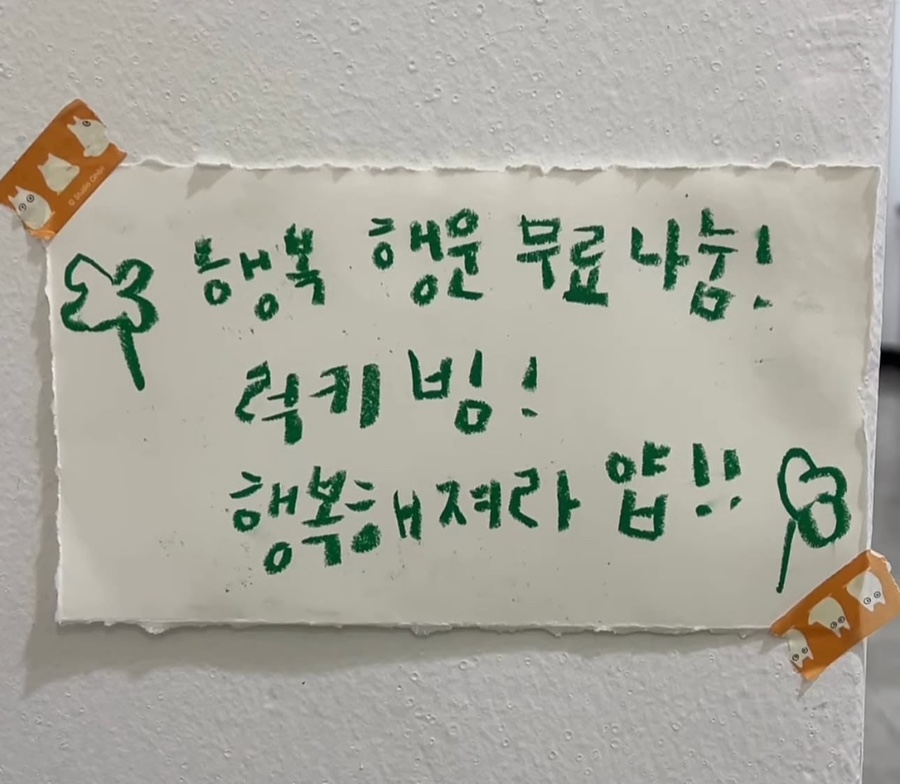 행복 행운 무료 나눔!
럭키 빔!
행복해져라 얍!!
© Studio Ghibli